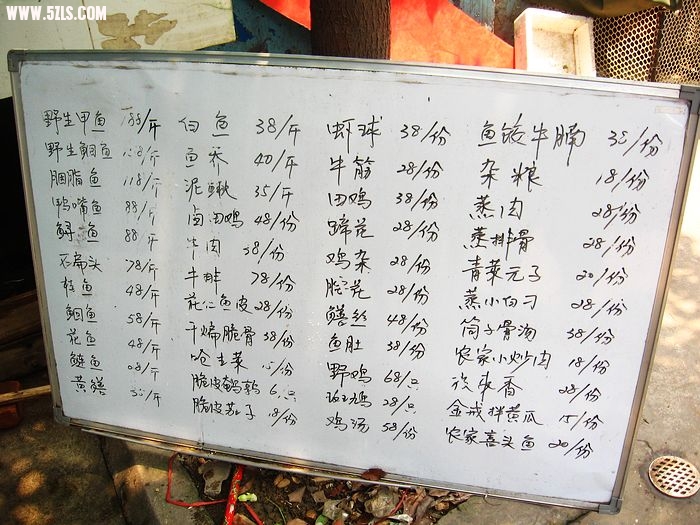 WWW.5ZLS.COM
野生甲鱼 188/斤
野生鮰鱼 128/斤
胭脂鱼 118/斤
鸭嘴鱼 88/斤
鲟鱼 88/斤
扁头 78/斤
鱼 48/斤
鮰鱼 58/斤
花鱼 48/斤
鲢鱼 /斤
黄鳝 /斤
白鱼 38/斤
鱼乔 40/斤
泥鳅 35/斤
卤田鸡 48/份
牛肉 58/份
牛排 78/份
花仁鱼皮 28/份
干煸脆骨 38/份
生菜 15/份
脆皮鹌鹑 6/只
脆皮茄子 18/份
虾球 38/份
牛筋 28/份
田鸡 38/份
蹄花 28/份
鸡杂 28/份
腰花 28/份
鳝丝 48/份
鱼肚 38/份
野鸡 68/只
鸡 28/只
鸡汤 58/份
鱼饺牛腩 38/份
杂粮 18/份
蒸肉 28/份
蒸排骨 28/份
青菜元子 20/份
蒸小白刁 28/份
筒子骨汤 38/份
农家小炒肉 18/份
香 28/份
金戒拌黄瓜 15/份
农家喜头鱼 20/份